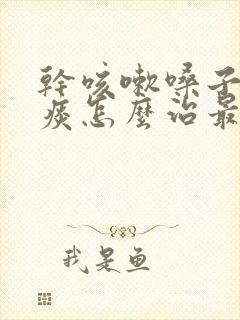 幹咳嗽嗓子
痰怎麼治最
我是魚